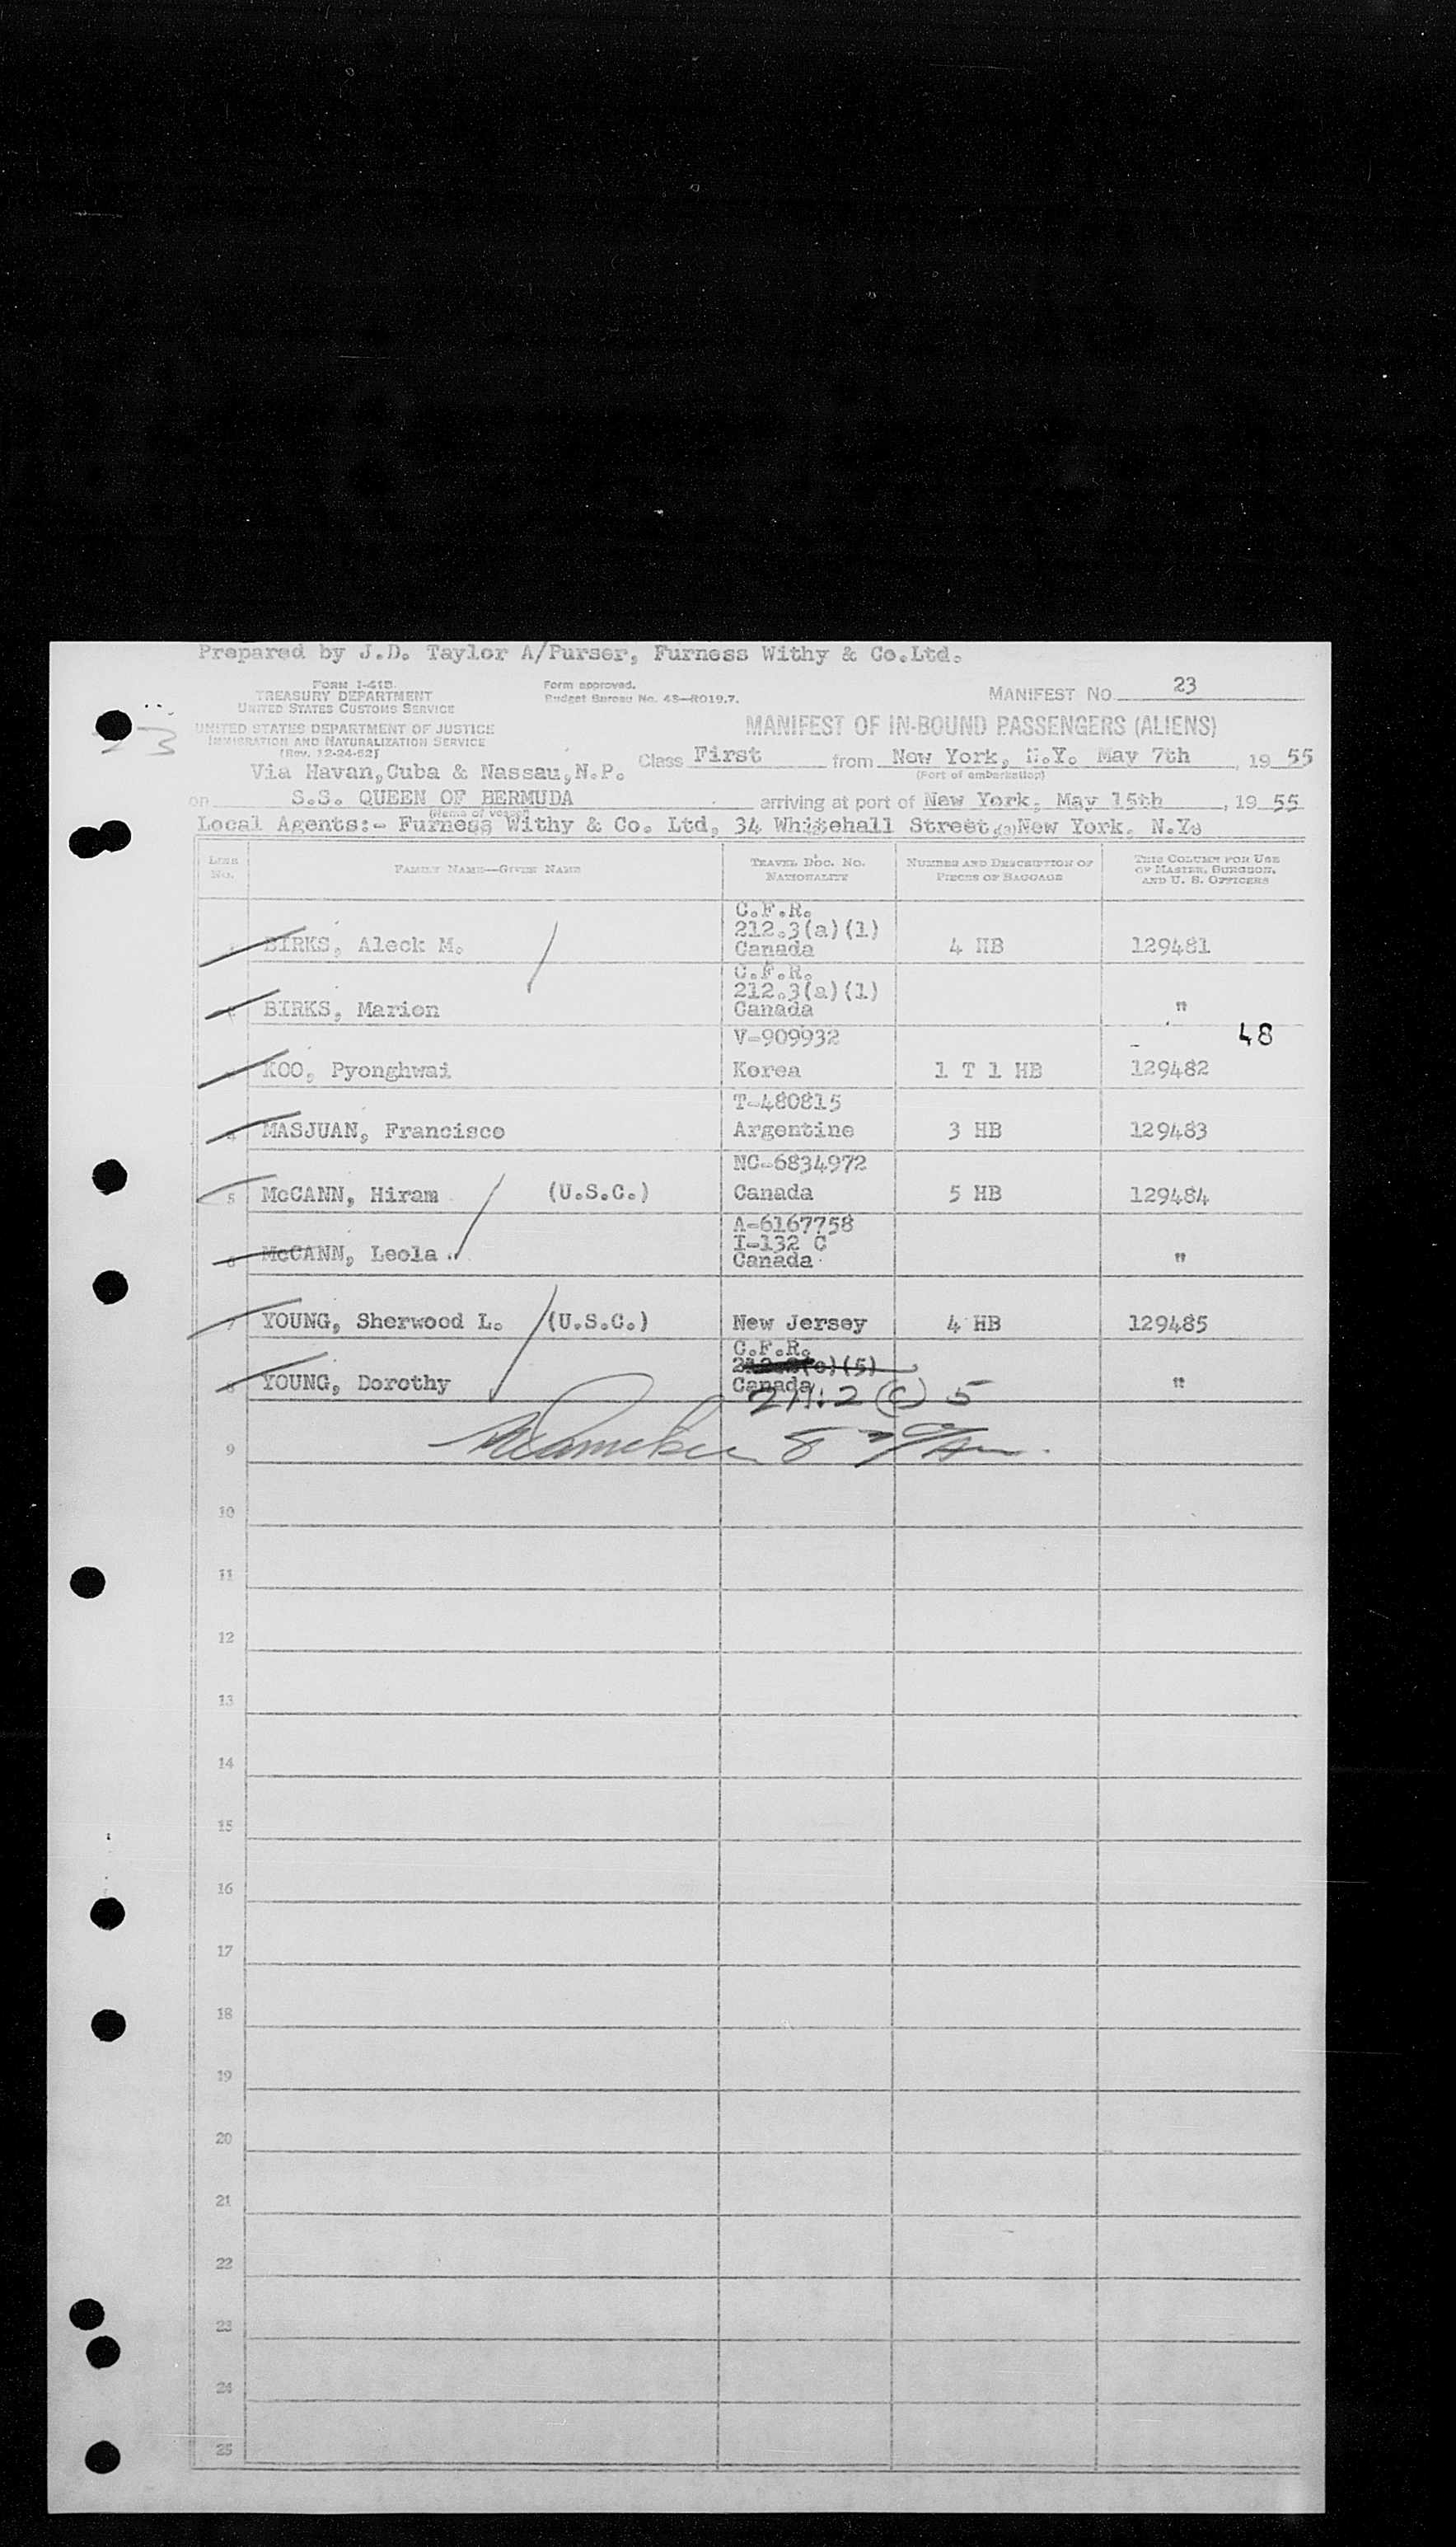 Prepared by J.D. Taylor A/Purser, Furness Withy & Co.Ltd.
FORM I-418
TREASURY DEPARTMENT
UNITED STATES CUSTOMS SERVICE
Form approved.
Budget Bureau No. 43—R019.7.
MANIFEST NO. 23
23
UNITED STATES DEPARTMENT OF JUSTICE
IMMIGRATION AND NATURALIZATION SERVICE
(Rev. 12-24-52)
MANIFEST OF IN-BOUND PASSENGERS (ALIENS)
Via Havan,Cuba & Nassau,N.P.
Class First from New York, N.Y. May 7th, 19 55
(Port of embarkation)
on S.S. QUEEN OF BERMUDA arriving at port of New York, May 15th, 19 55
(Name of vessel)
Local Agents:- Furness Withy & Co. Ltd, 34 Whitehall Street, New York, N.Y.
(3)
LINE NO. FAMILY NAME—GIVEN NAME TRAVEL DOC. NO. NATIONALITY NUMBER AND DESCRIPTION OF PIECES OF BAGGAGE THIS COLUMN FOR USE OF MASTER, SURGEON, AND U. S. OFFICERS
C.F.R.
212.3(a)(1)
1 BIRKS, Aleck M. Canada 4 HB 129481
C.F.R.
212.3(a)(1)
2 BIRKS, Marion Canada "
V-909932 48
3 KOO, Pyonghwai Korea 1 T 1 HB 129482
T-480815
4 MASJUAN, Francisco Argentine 3 HB 129483
NC-6834972
5 McCANN, Hiram (U.S.C.) Canada 5 HB 129484
A-6167758
I-132 C
6 McCANN, Leola Canada "
7 YOUNG, Sherwood L. (U.S.C.) New Jersey 4 HB 129485
C.F.R.
(c)(5)
8 YOUNG, Dorothy Canada "
211.2 (c) 5
9
10
11
12
13
14
15
16
17
18
19
20
21
22
23
24
25